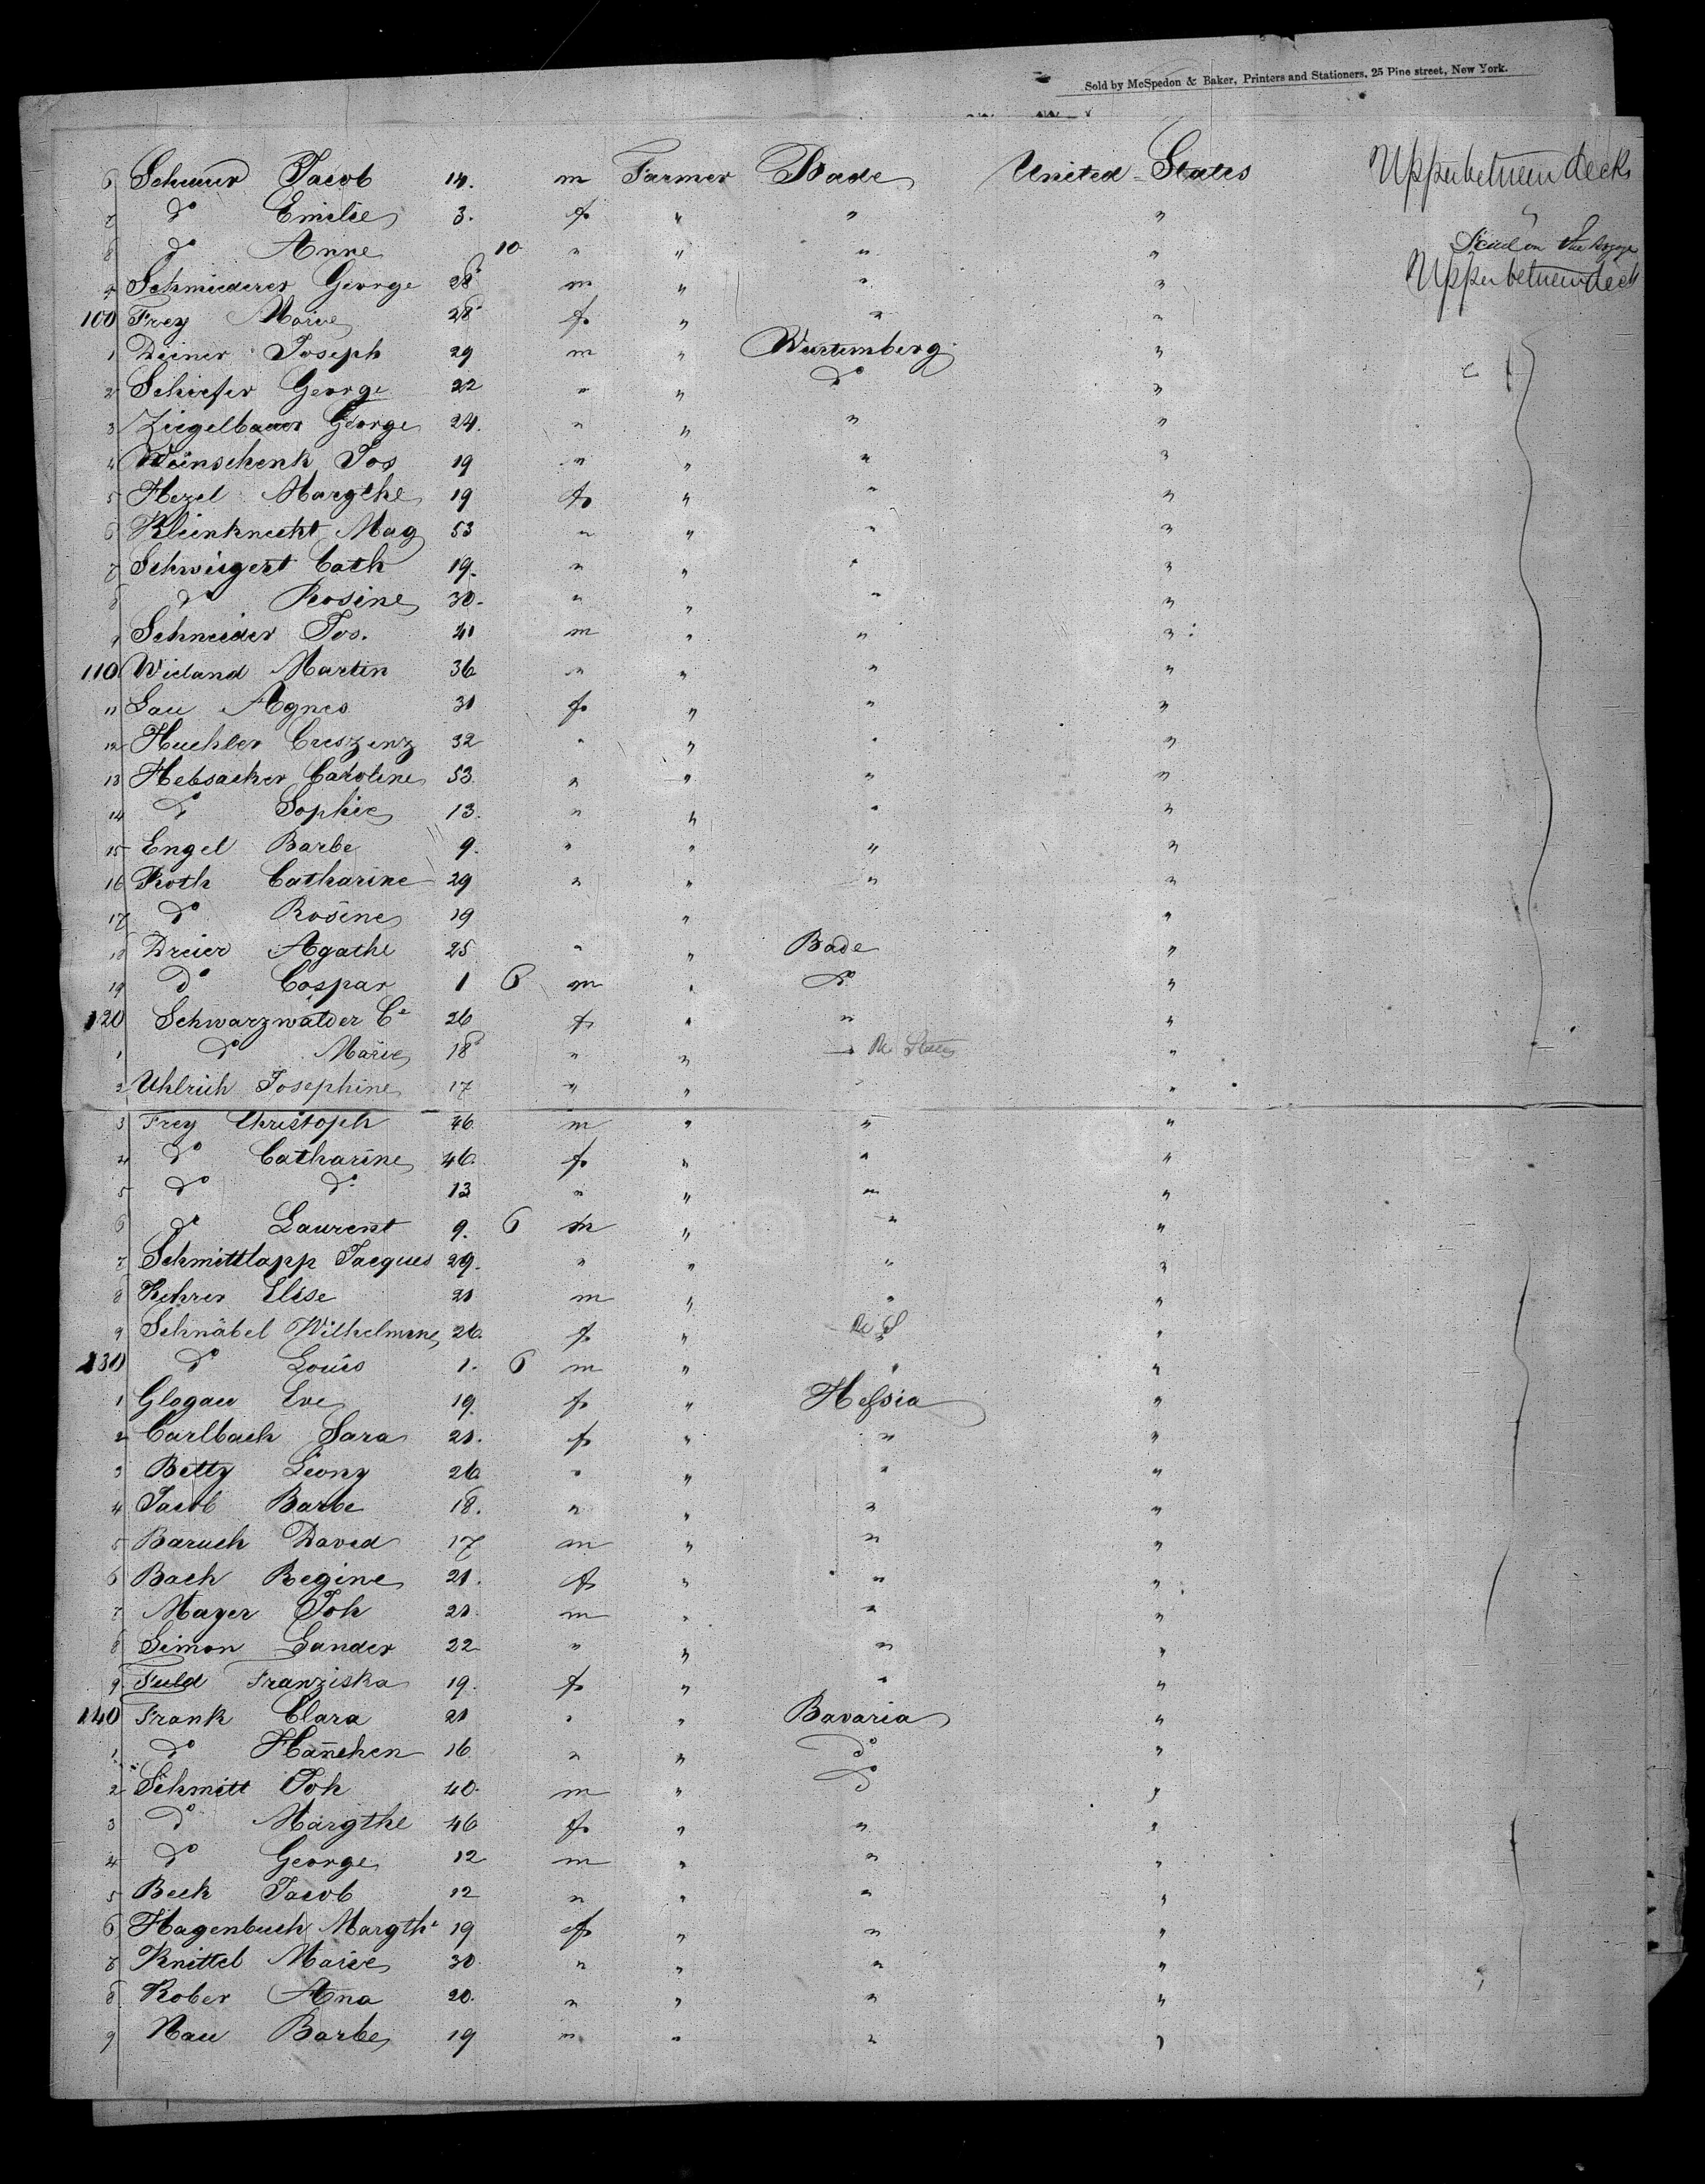 Sold by McSpedon & Baker, Printers and Stationers, 25 Pine street, New York.
6 Scheurer Jacob 14. m Farmer Bade United States Upper between decks
7 do Emilie 3. f " " "
8 do Anne 10 " " " " Died on the Voyage
9 Schmiederer George 28 m " " " Upper between deck
100 Frey Marie 28 f " " "
1 Deiner Joseph 29 m " Wurtemberg "
2 Schiefer George 22 " " do "
3 Ziegelbauer George 24. " " " "
4 Weinschenk Jos 19 " " " "
5 Hezel Margthe 19 f " " "
6 Kleinknecht Mag 53 " " " "
7 Schweigert Cath 19. " " " "
8 do Rosine 30. " " " "
9 Schneider Jos. 21 m " " "
110 Wieland Martin 36 " " " "
11 Lau Agnes 31 f " " "
12 Huehler Creszenz 32 " " " "
13 Hebsacker Caroline 53. " " " "
14 do Sophie 13. " " " "
15 Engel Barbe 9. " " " "
16 Roth Catharine 29 " " " "
17 do Rosine 19 " "
18 Dreier Agathe 25 " " Bade "
19 do Caspar 1 6 m " do "
120 Schwarzwalder Ce 26 f " " "
1 do Marie 18 " " "
2 Uhlrich Josephine 17 " " "
3 Frey Christoph 46. m " " "
4 do Catharine 46. f " " "
5 do do 13 " " " "
6 do Laurent 9. 6 m " " "
7 Schmittlapp Jacques 29. " " " "
8 Kehrer Elise 21 m " " "
9 Schnäbel Wilhelmine 26. f " "
130 do Louis 1. 6 m " " "
1 Glogau Eve 19. f " Hessia "
2 Carlbach Sara 21. f " " "
3 Betty Leony 26. " " " "
4 Jacob Barbe 18. " " " "
5 Baruch David 17 m " " "
6 Bach Regine 21. f " " "
7 Mayer Joh 21. m " " "
8 Simon Sander 22 " " " "
9 Fuld Franziska 19. f " " "
140 Frank Clara 21 " " Bavaria "
1 do Hañchen 16 " " do "
2 Schmitt Joh 40. m " do "
3 do Margthe 46 f " " "
4 do George 12 m " " "
5 Beck Jacob 12 " " " "
6 Hagenbuch Margthe 19 f " " "
7 Knittel Marie 30 " " " "
8 Kober Ana 20. " " " "
9 Nau Barbe 19 " " " "